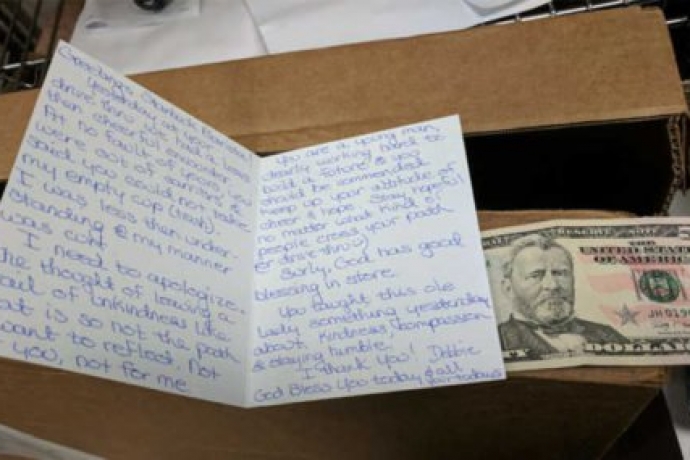 Greetings Starbucks Barista
Yesterday at your
drive thru we had a less
then cheerful encounter.
At no fault of yours you
were out of carriers &
said you could not take
my empty cup (trash).
I was less then under-
standing & my manner
was curt
I need to apologize.
The thought of leaving a
trail of unkindness like
that is so not the path
want to reflect. Not
you, not for me
You are a young man,
clearly working hard to
build a future & you
should be commended.
Keep up your attitude of
cheer & hope. Stay hopeful
no matter what kind of
people cross your path
(or drive-thru)
Surly, God has good
blessing in store
You taught this ole
lady something yesterday
about, kindness, compassion
& staying humble.
I thank You! Debbie
God Bless You today & all
your todays
RESERVE NOTE
THE
UNITED STATES
OF AMERICA
DOLLARS